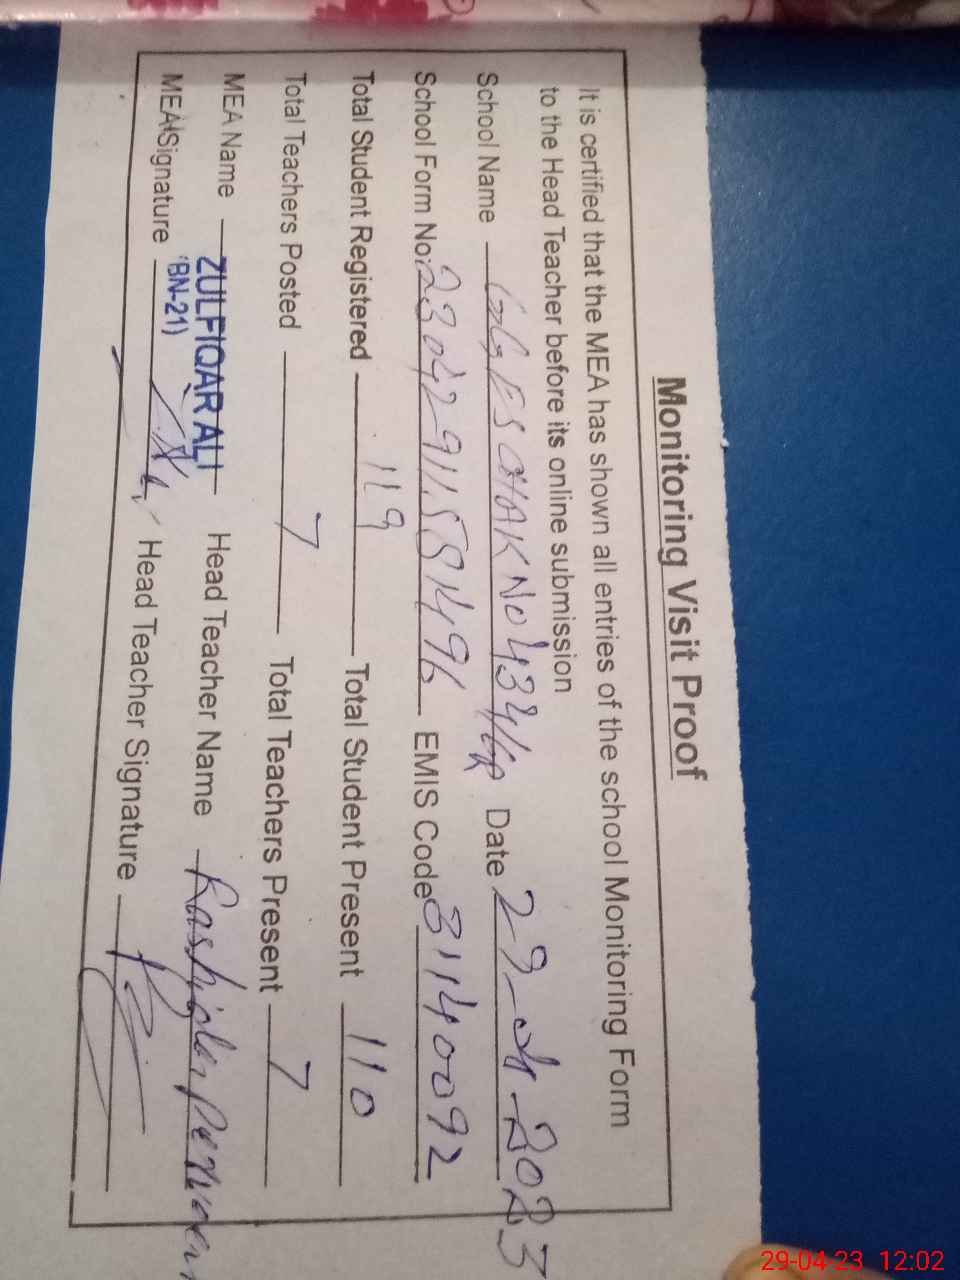 Monitoring Visit Proof
It is certified that the MEA has shown all entries of the school Monitoring Form
to the Head Teacher before its online submission
School Name GGES CHAK NO 434/GB Date 29-04-2023
School Form No: 23042911581496 EMIS Code 31140092
Total Student Registered 119 Total Student Present 110
Total Teachers Posted 7 Total Teachers Present 7
MEA Name ZULFIQAR ALI Head Teacher Name Rashida Perveen
(BN-21)
MEA Signature Head Teacher Signature
29-04-23 12:02